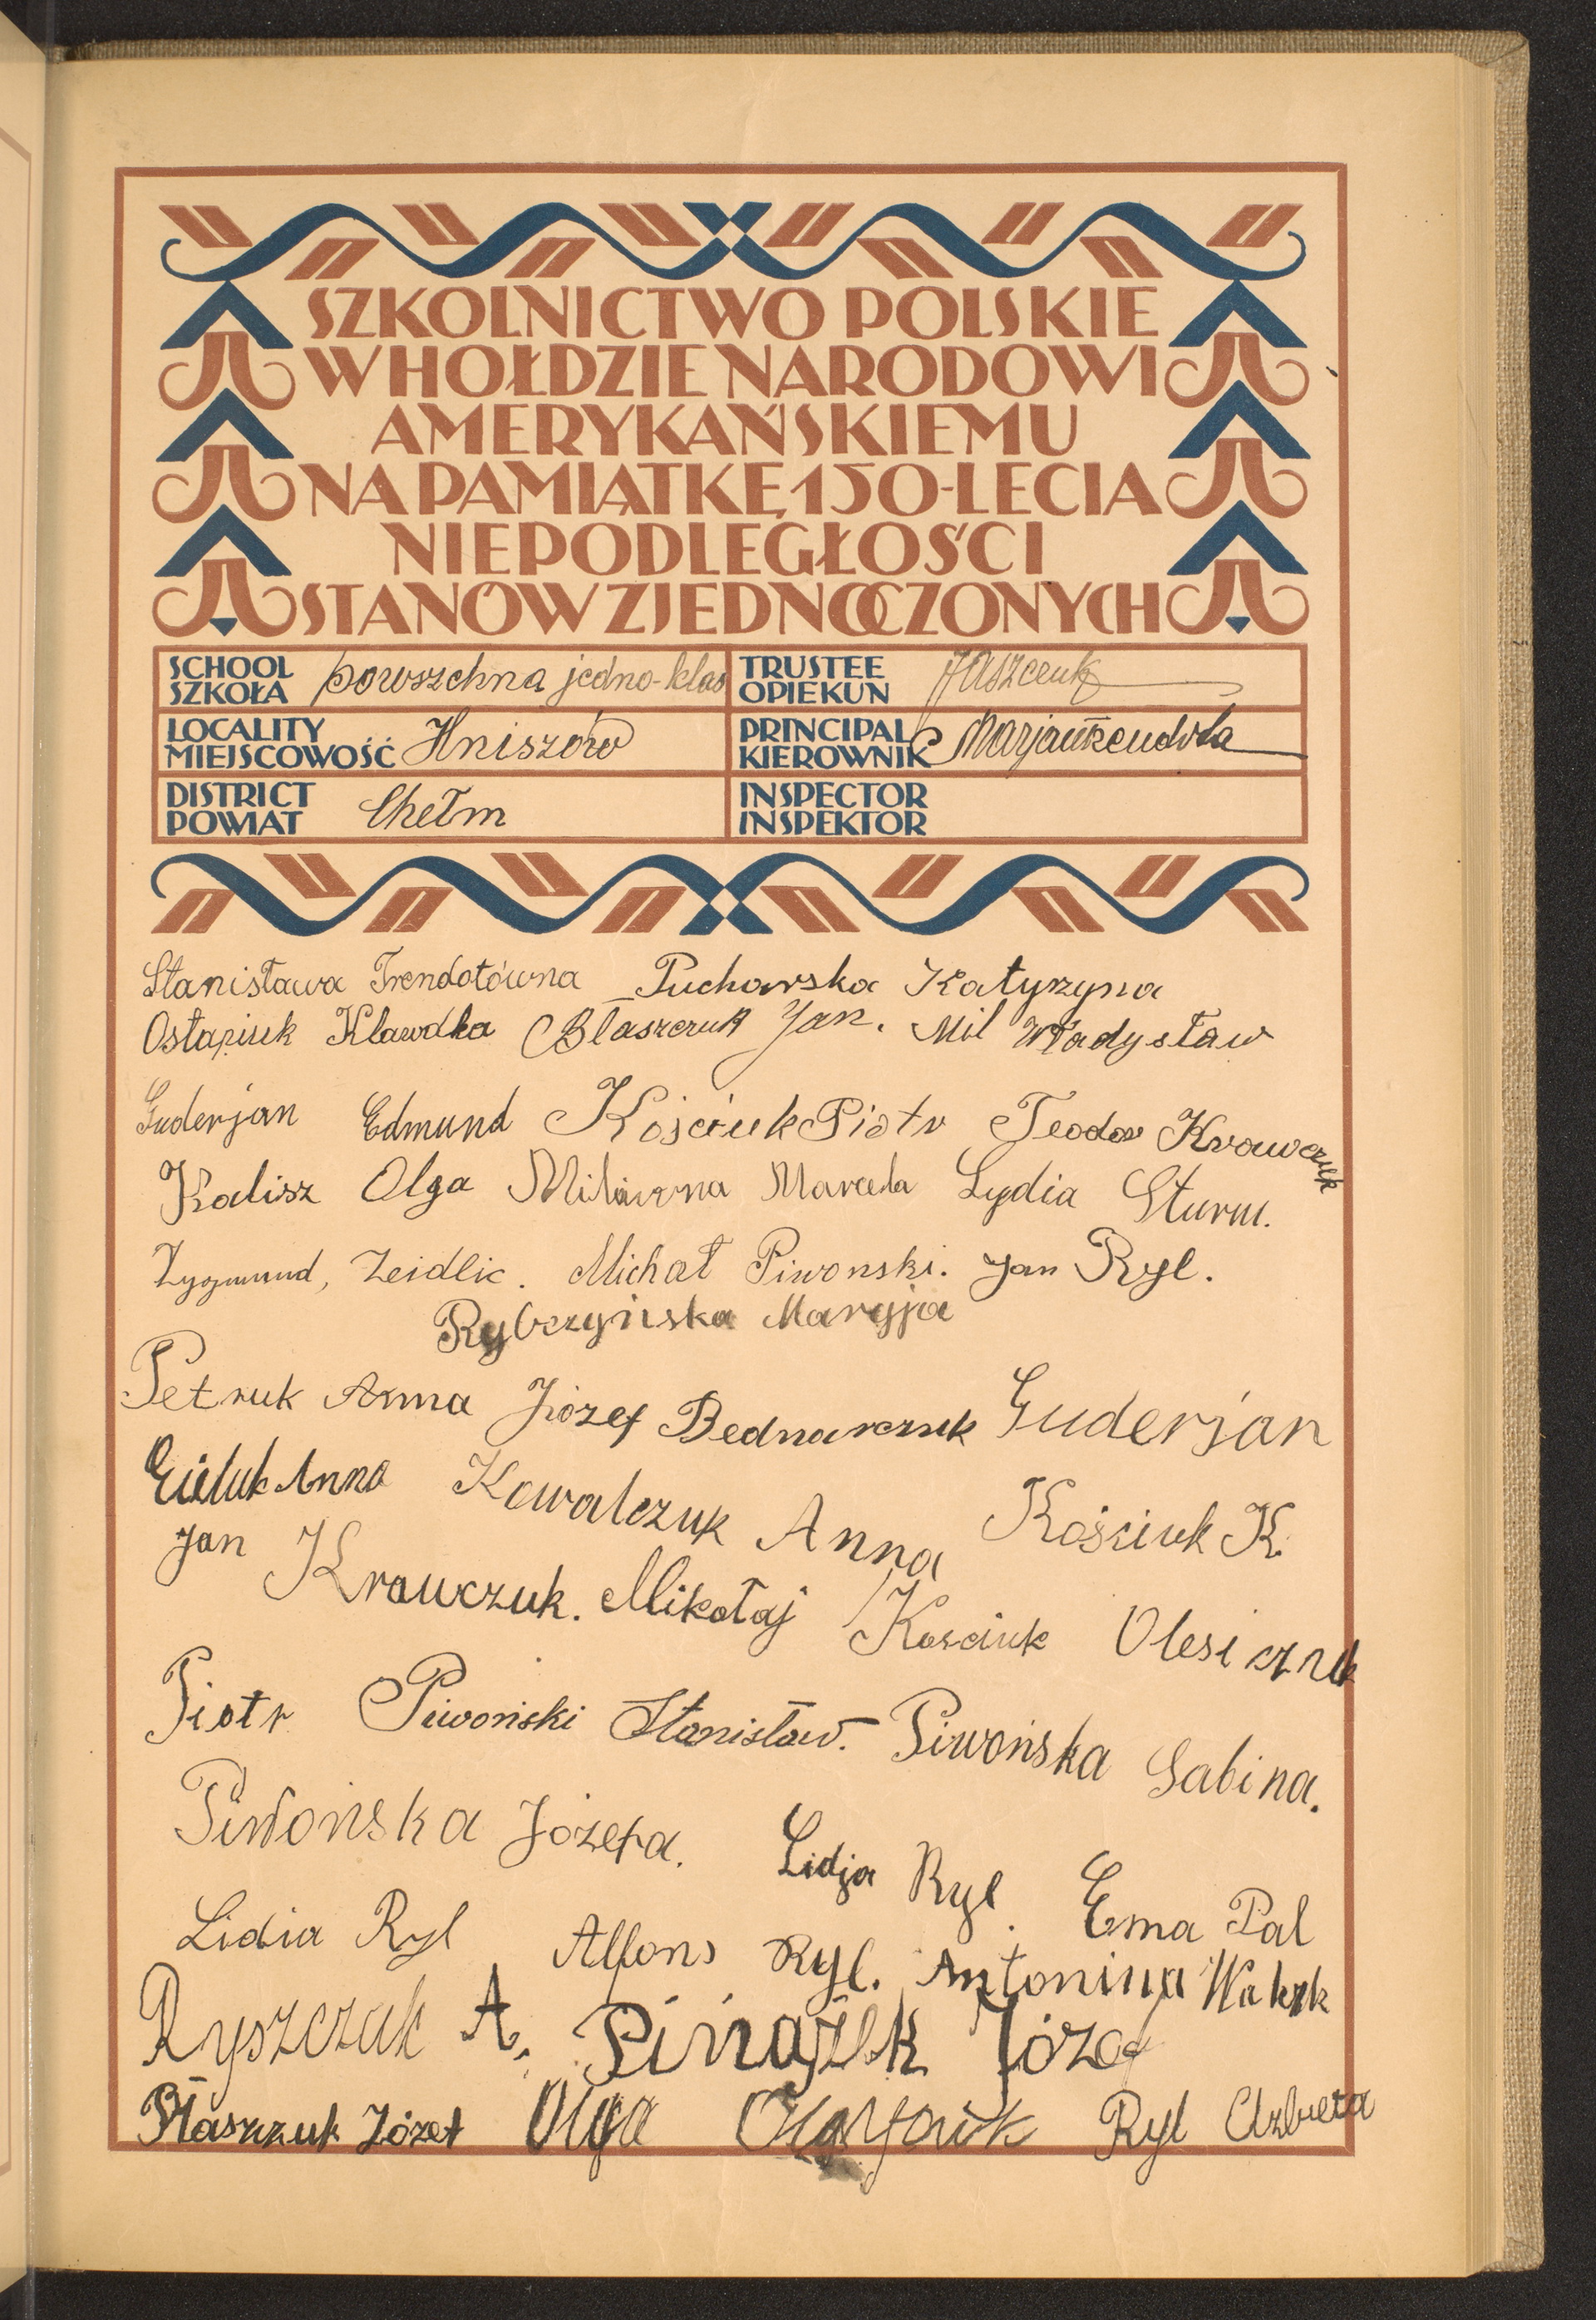 SZKOLNICTWO POLSKIE
W HOŁDZIE NARODOWI
AMERYKAŃSKIEMU
NA PAMIĄTKĘ 150-LECIA
NIEPODLEGŁOŚCI
STANÓW ZJEDNOCZONYCH
SCHOOL
SZKOŁA powszechna jedno-klas
TRUSTEE
OPIEKUN
LOCALITY
MIEJSCOWOŚĆ Hniszów
PRINCIPAL
KIEROWNIK
DISTRICT
POWIAT Chełm
INSPECTOR
INSPEKTOR
Stanisława Trendotówna Puchowska Katyrzyna
Ostapiuk Klawdka Błaszczuk Jan. Mil Władysław
Guderjan Edmund Kościuk Piotr Teodor Krawczuk
Kalisz Olga Marcela Lydia Sturm.
Zygmund, Zeidlic. Michał Piwonski. Jan Ryl.
Rybczyńska Maryja
Petruk Anna Józef Bednarczuk Guderjan
Anna Kowalczuk Anna Kościuk K.
Jan Krawczuk. Mikołaj Kosciuk Olesiczuk
Piotr Piwoński Stanisław. Piwońska Sabina.
Piwońska Józefa. Lidja Ryl. Ema Pal
Lidia Ryl Alfons Ryl. Antonina
Ryszczuk A. Józef
Błaszczuk Józef Olga Ryl